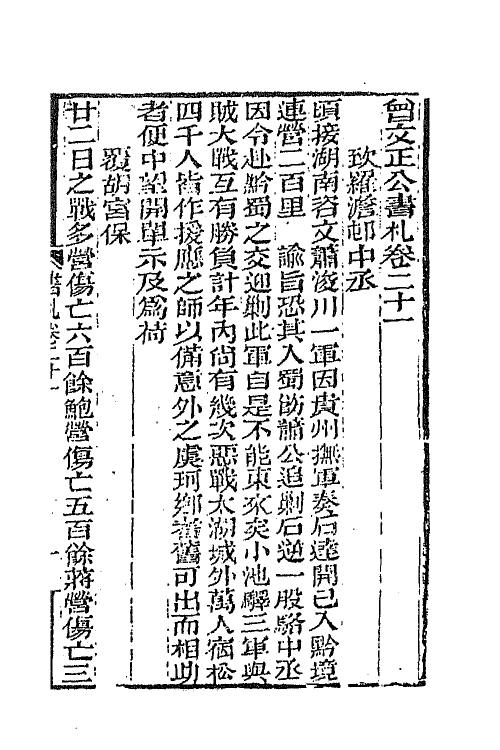 曾文正公書札卷二十一
致羅澹村中丞
頃接湖南咨文蕭浚川一軍因貴州撫軍奏石達開已入黔境
連營二百里　諭旨恐其入蜀飭蕭公追剿石逆一股駱中丞
因令赴黔蜀之交迎剿此軍自是不能東來矣小池驛三軍與
賊大戰互有勝負計年內尚有幾次惡戰太湖城外萬人宿松
四千人皆作援應之師以備意外之虞珂鄉耆舊可出而相助
者便中望開單示及為荷
覆胡宮保
廿二日之戰多營傷亡六百餘鮑營傷亡五百餘蔣營傷亡三
書札卷二十一
一